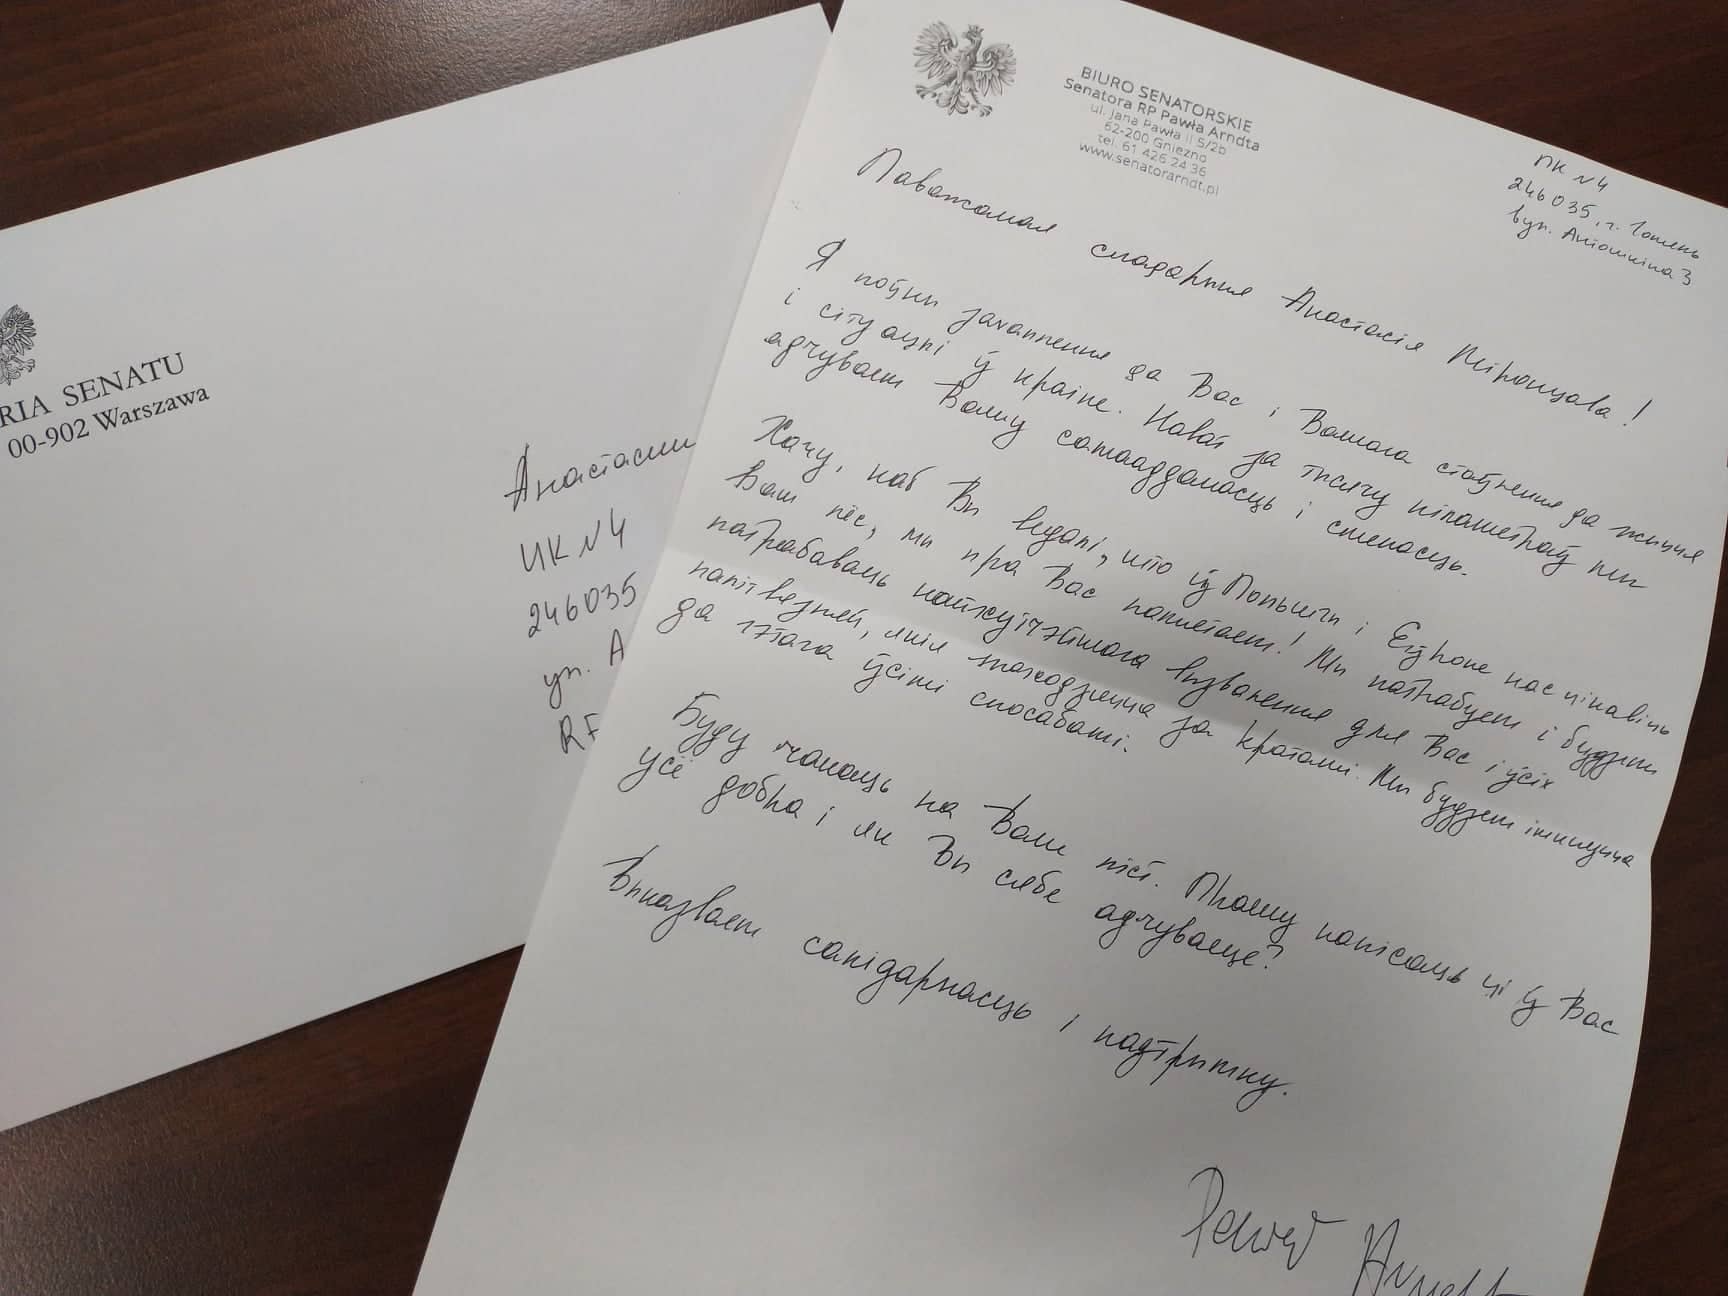 RIA SENATU
00-902 Warszawa
Анастасии
ИК №4
246035
ул. А
BIURO SENATORSKIE
Senatora RP Pawła Arndta
ul. Jana Pawła II 5/2b
62-200 Gniezno
tel. 61 426 24 36
www.senatorarndt.pl
ПК №4
246035, г. Гомель
вул. Антошкіна 3
Паважамая спадарыня Анастасія Міронцава!
Я поўны захаплення да Вас і Вашага стаўлення да жыцця
і сітуацыі ў краіне. Нават за тысячу кіламетраў мы
адчуваем Вашу самааддамасць і смеласць.
Хачу, каб Вы ведалі, што ў Польшчы і Еўропе нас цікавіць
Ваш лёс, мы пра Вас памятаем! Мы патрабуем і будзем
патрабаваць найхутчэйшага вызвалення для Вас і ўсіх
палітвязняў, якія знаходзяцца за кратамі. Мы будзем імкнуцца
да гэтага ўсімі спосабамі.
Буду чакаць на Ваш ліст. Прашу напісаць ці ў Вас
усё добра і як Вы сябе адчуваеце?
Выказваем салідарнасць і падтрымку.
Paweł Arndt